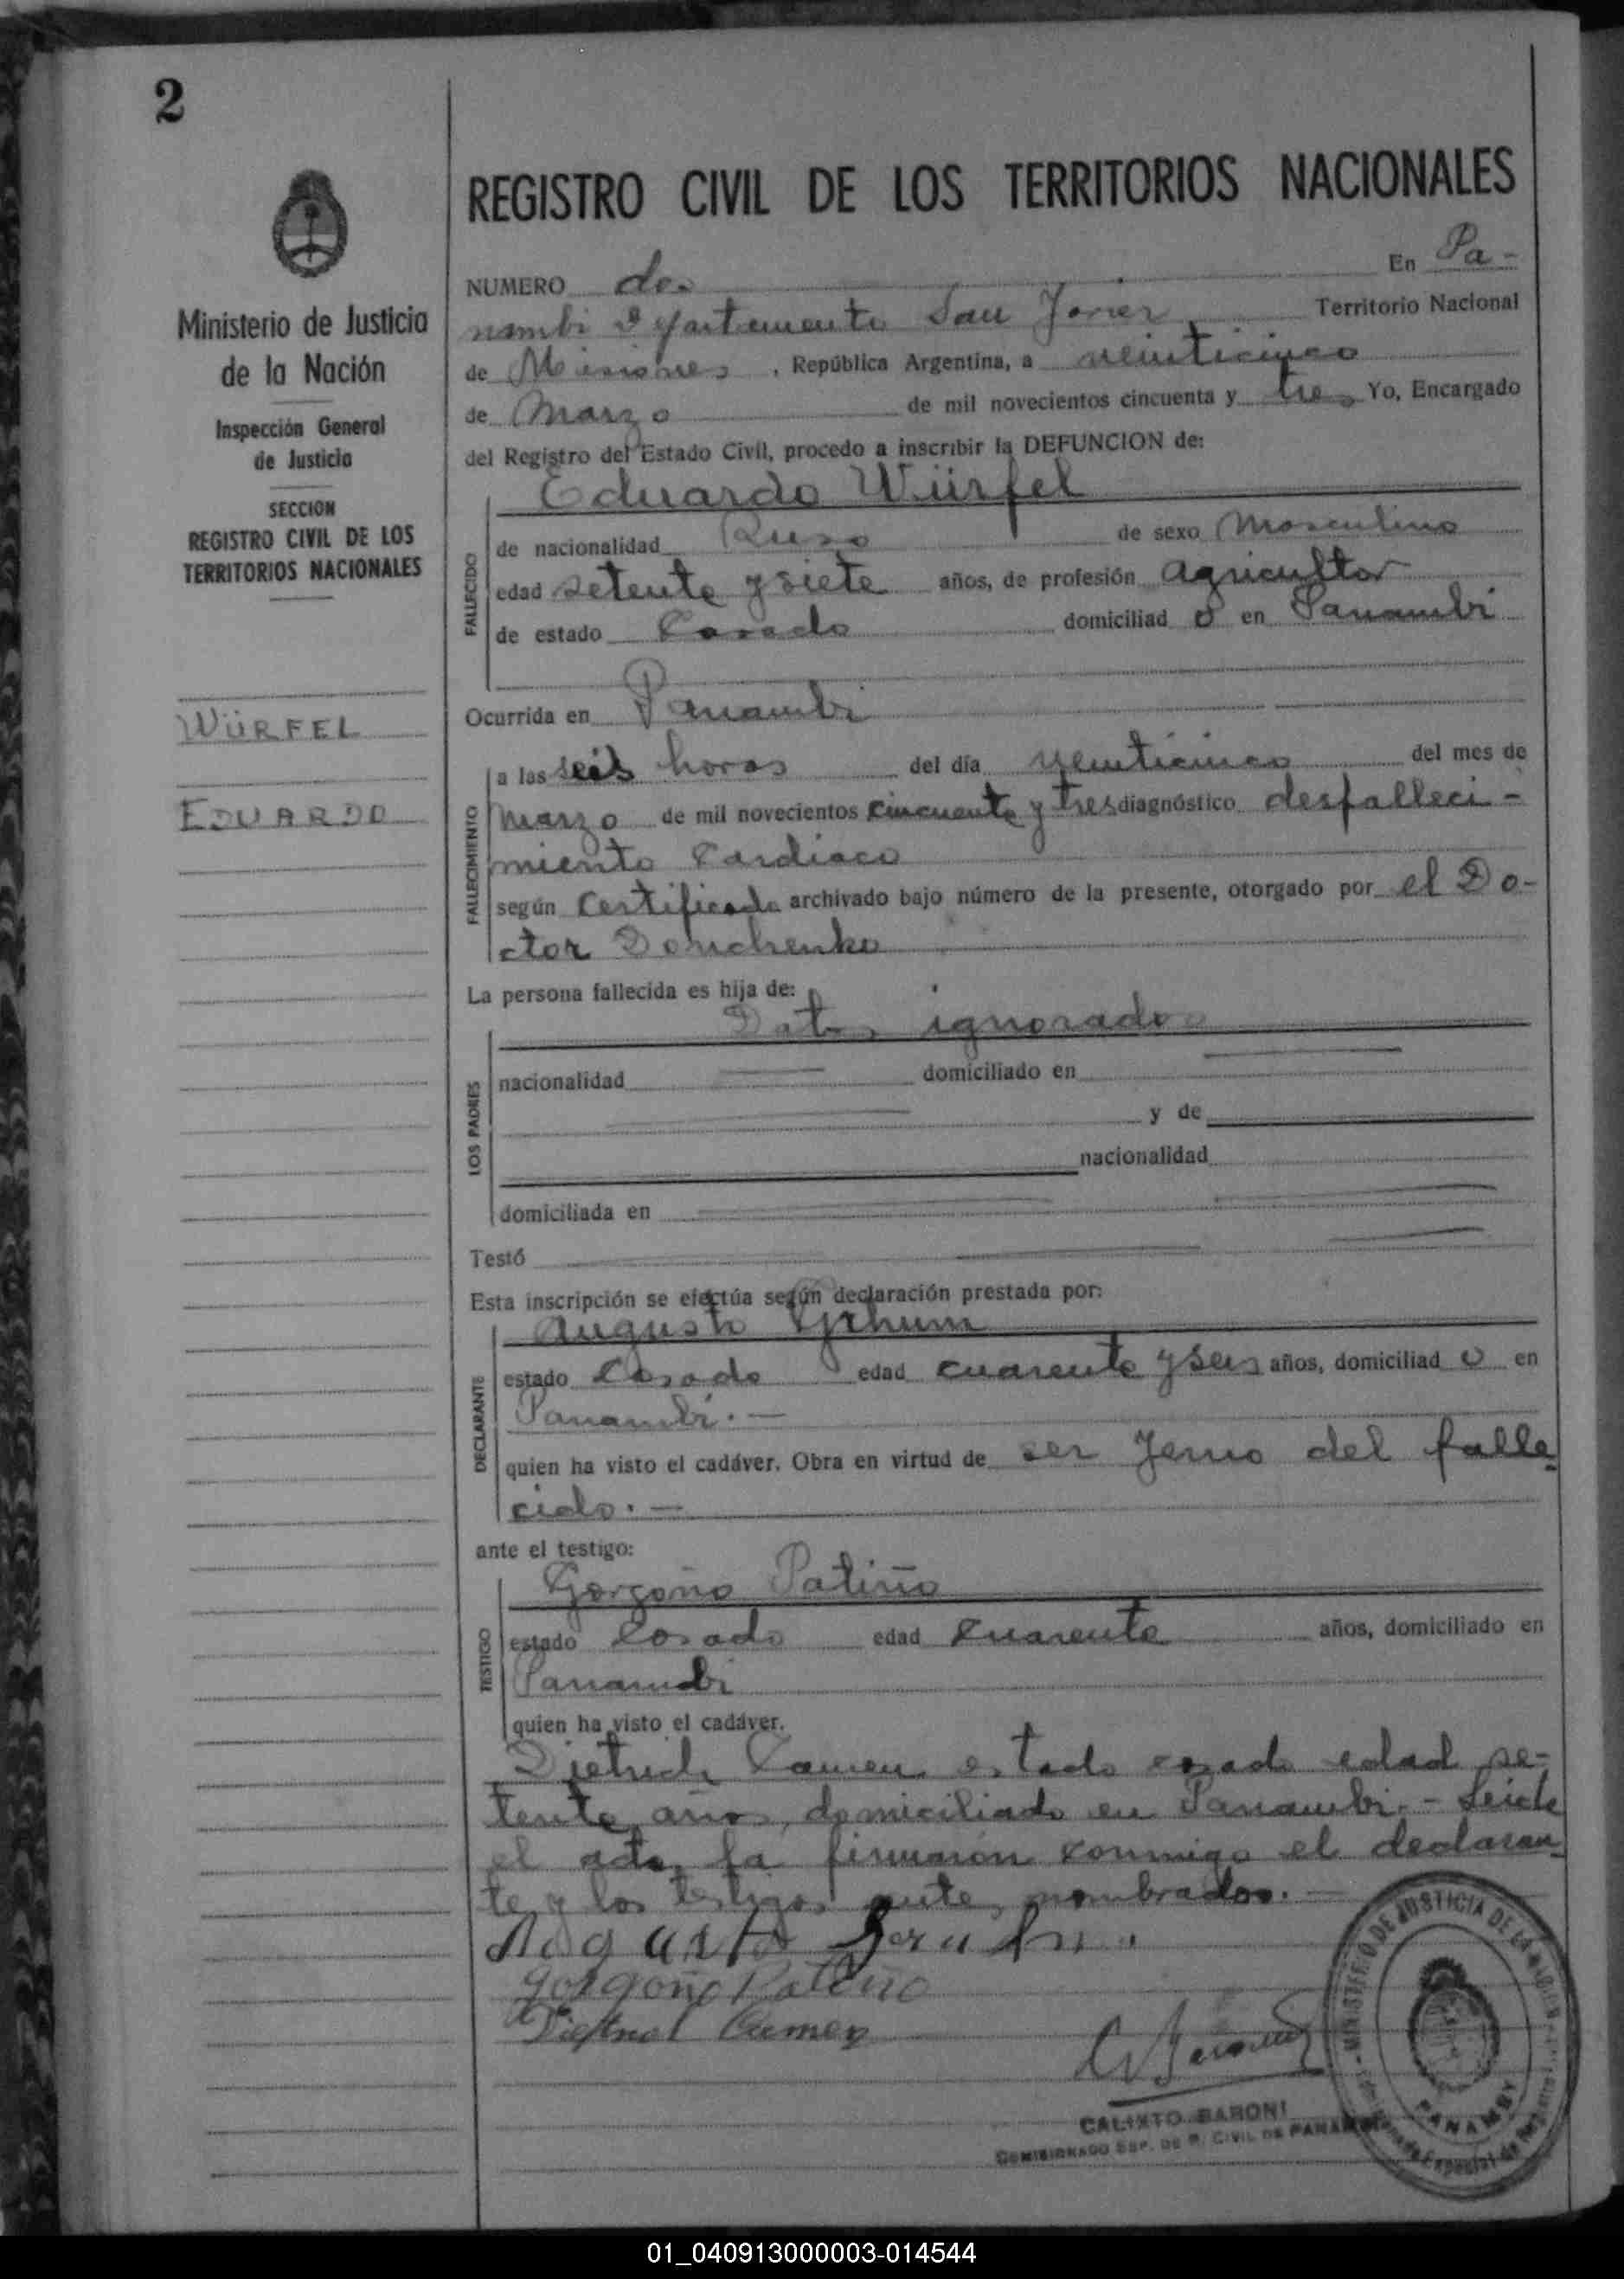 2
Ministerio de Justicia
de la Nación
Inspección General
de Justicia
SECCION
REGISTRO CIVIL DE LOS
TERRITORIOS NACIONALES
WÜRFEL
EDUARDO
REGISTRO CIVIL DE LOS TERRITORIOS NACIONALES
NUMERO dos En Pa-
nambi Departamento San Javier Territorio Nacional
de Misiones, República Argentina, a veinticinco
de Marzo de mil novecientos cincuenta y tres Yo, Encargado
del Registro del Estado Civil, procedo a inscribir la DEFUNCION de:
Eduardo Würfel
FALLECIDO
de nacionalidad Ruso de sexo Masculino
edad setenta y siete años, de profesión Agricultor
de estado Casado domiciliad o en Panambi
Ocurrida en Panambi
FALLECIMIENTO
a las seis horas del día veinticinco del mes de
marzo de mil novecientos cincuenta y tres diagnóstico desfalleci-
miento cardiaco
según Certificado archivado bajo número de la presente, otorgado por el Do-
ctor Donchenko
La persona fallecida es hija de:
Datos ignorados
LOS PADRES
nacionalidad domiciliado en
y de
nacionalidad
domiciliada en
Testó
Esta inscripción se efectúa según declaración prestada por:
Augusto
DECLARANTE
estado Casado edad cuarenta y seis años, domiciliad o en
Panambi.-
quien ha visto el cadáver. Obra en virtud de ser Jerno del falle-
cido.-
ante el testigo:
Gorgoño Patiño
TESTIGO
estado Casado edad cuarenta años, domiciliado en
Panambi
quien ha visto el cadáver.
Dietrich estado casado edad se-
tenta años, domiciliado en Panambi.- Leida
el acta, la firmaron conmigo el declaran-
te y los testigos ante nombrados.-
Augusto
Gorgoño Patiño
CALIXTO BARONI
COMISIONADO ESP. DE R. CIVIL DE PANAMBI
MINISTERIO DE JUSTICIA DE LA NACION
PANAMBY
01_040913000003-014544